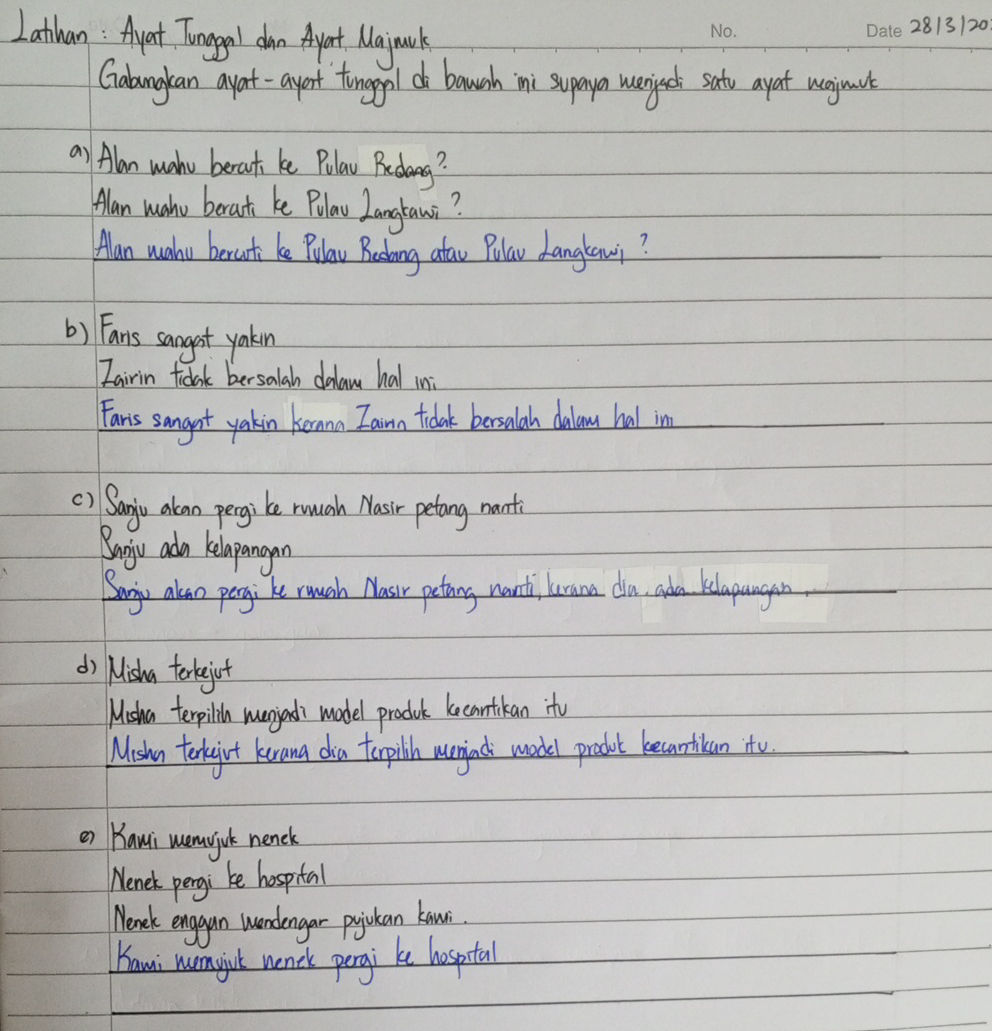 Latihan : Ayat Tunggal dan Ayat Majmuk
No.
Date 28/3/20
Gabungkan ayat-ayat tunggal di bawah ini supaya menjadi satu ayat majmuk
a) Alan mahu bercuti ke Pulau Redang?
Alan mahu bercuti ke Pulau Langkawi?
Alan mahu bercuti ke Pulau Redang atau Pulau Langkawi?
b) Faris sangat yakin
Zairin tidak bersalah dalam hal ini
Faris sangat yakin kerana Zairin tidak bersalah dalam hal ini
c) Sanju akan pergi ke rumah Nasir petang nanti
Sanju ada kelapangan
Sanju akan pergi ke rumah Nasir petang nanti, kerana dia ada kelapangan.
d) Misha terkejut
Misha terpilih menjadi model produk kecantikan itu
Misha terkejut kerana dia terpilih menjadi model produk kecantikan itu.
e) Kami memujuk nenek
Nenek pergi ke hospital
Nenek enggan mendengar pujukan kami.
Kami memujuk nenek pergi ke hospital